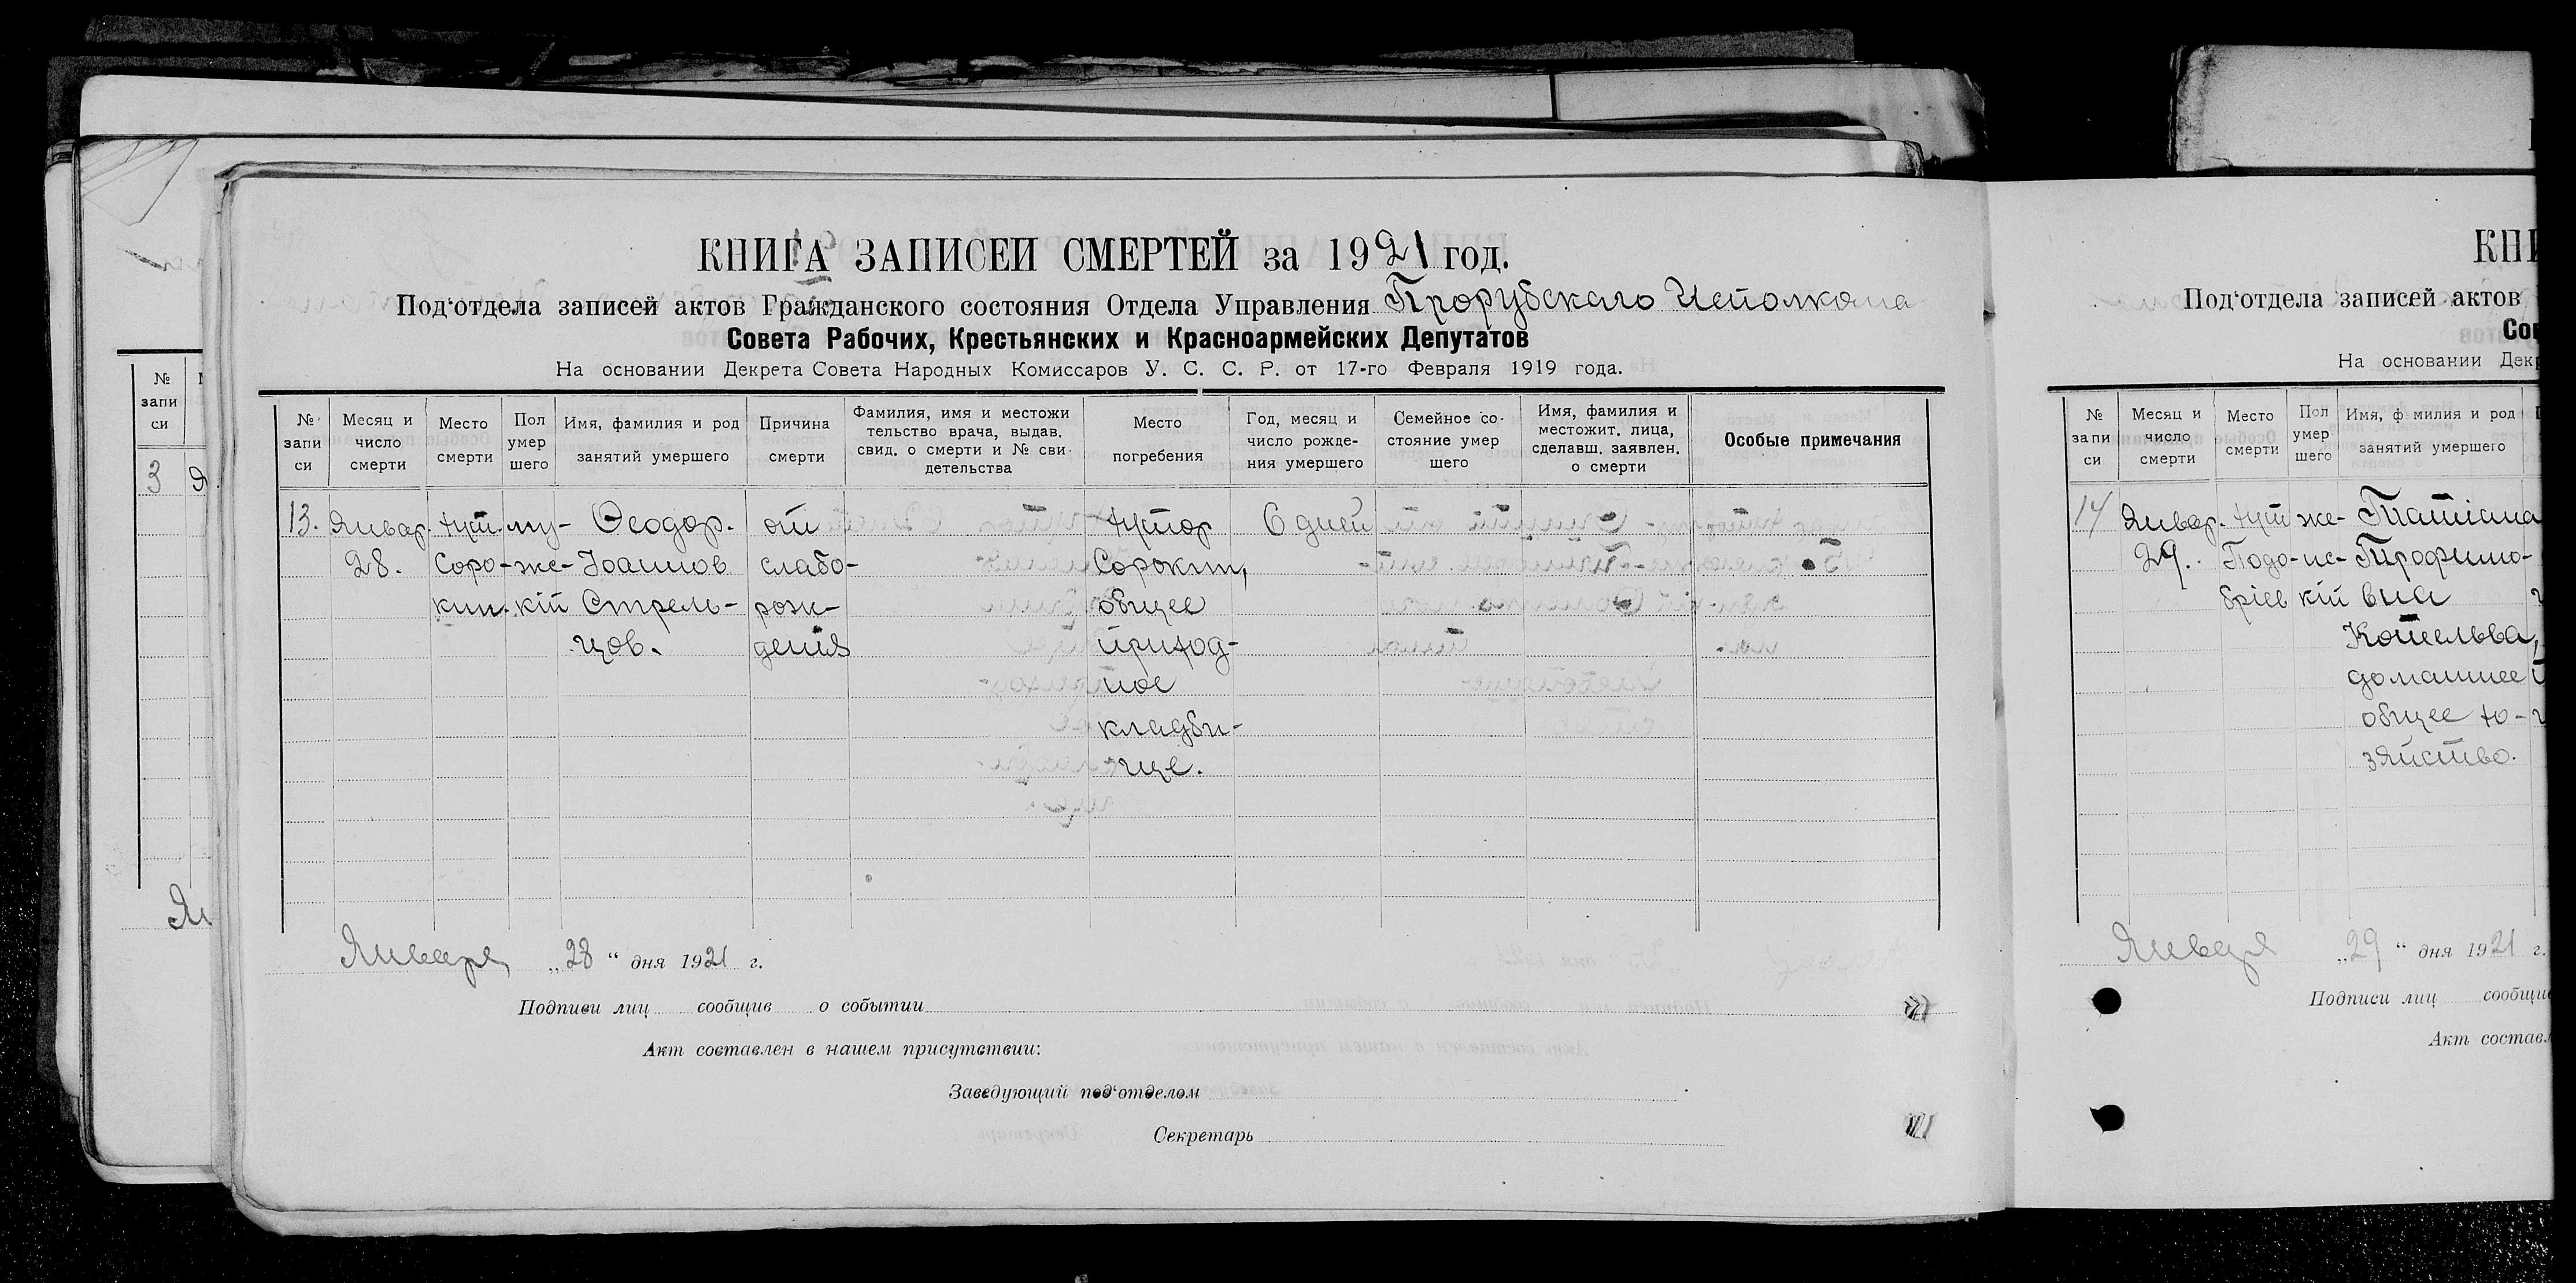 КНИГА ЗАПИСЕЙ СМЕРТЕЙ за 1921 год.
Под‘отдела записей актов Гражданского состояния Отдела Управления Прорубскаго Исполкома
Совета Рабочих, Крестьянских и Красноармейских Депутатов
На основании Декрета Совета Народных Комиссаров У. С. С. Р. от 17-го Февраля 1919 года.
№ запи си
Месяц и число смерти
Место смерти
Пол умер шего
Имя, фамилия и род занятий умершего
Причина смерти
Фамилия, имя и местожи тельство врача, выдав. свид. о смерти и № сви детельства
Место погребения
Год, месяц и число рожде- ния умершего
Семейное со- стояние умер шего
Имя, фамилия и местожит. лица, сделавш. заявлен. о смерти
Особые примечания
13. Январ. хут. му- Ѳеодор. от хутор 6 дней
28. Соро- же- Іоаннов слабо- Сорокин,
кин. кій Стрель- рож- общее
цов. денія приход-
ное
кладби-
ще.
Января „28“ дня 1921 г.
Подписи лиц сообщив о событии
Акт составлен в нашем присутствии:
Заведующий под‘отделом
Секретарь
№ запи си
3 Я
Ян
КНИ
Под‘отдела записей актов
Сов
На основании Дек
№ запи си
Месяц и число смерти
Место смерти
Пол умер шего
Имя, ф милия и род занятий умершего
14 Январ. хут же- Татіана
29. Подо- нс- Трофимо-
бріев кій вна
Котельва,
домашнее
общее хо-
зяйство.
Января „29“ дня 1921 г.
Подписи лиц сообщив
Акт составл